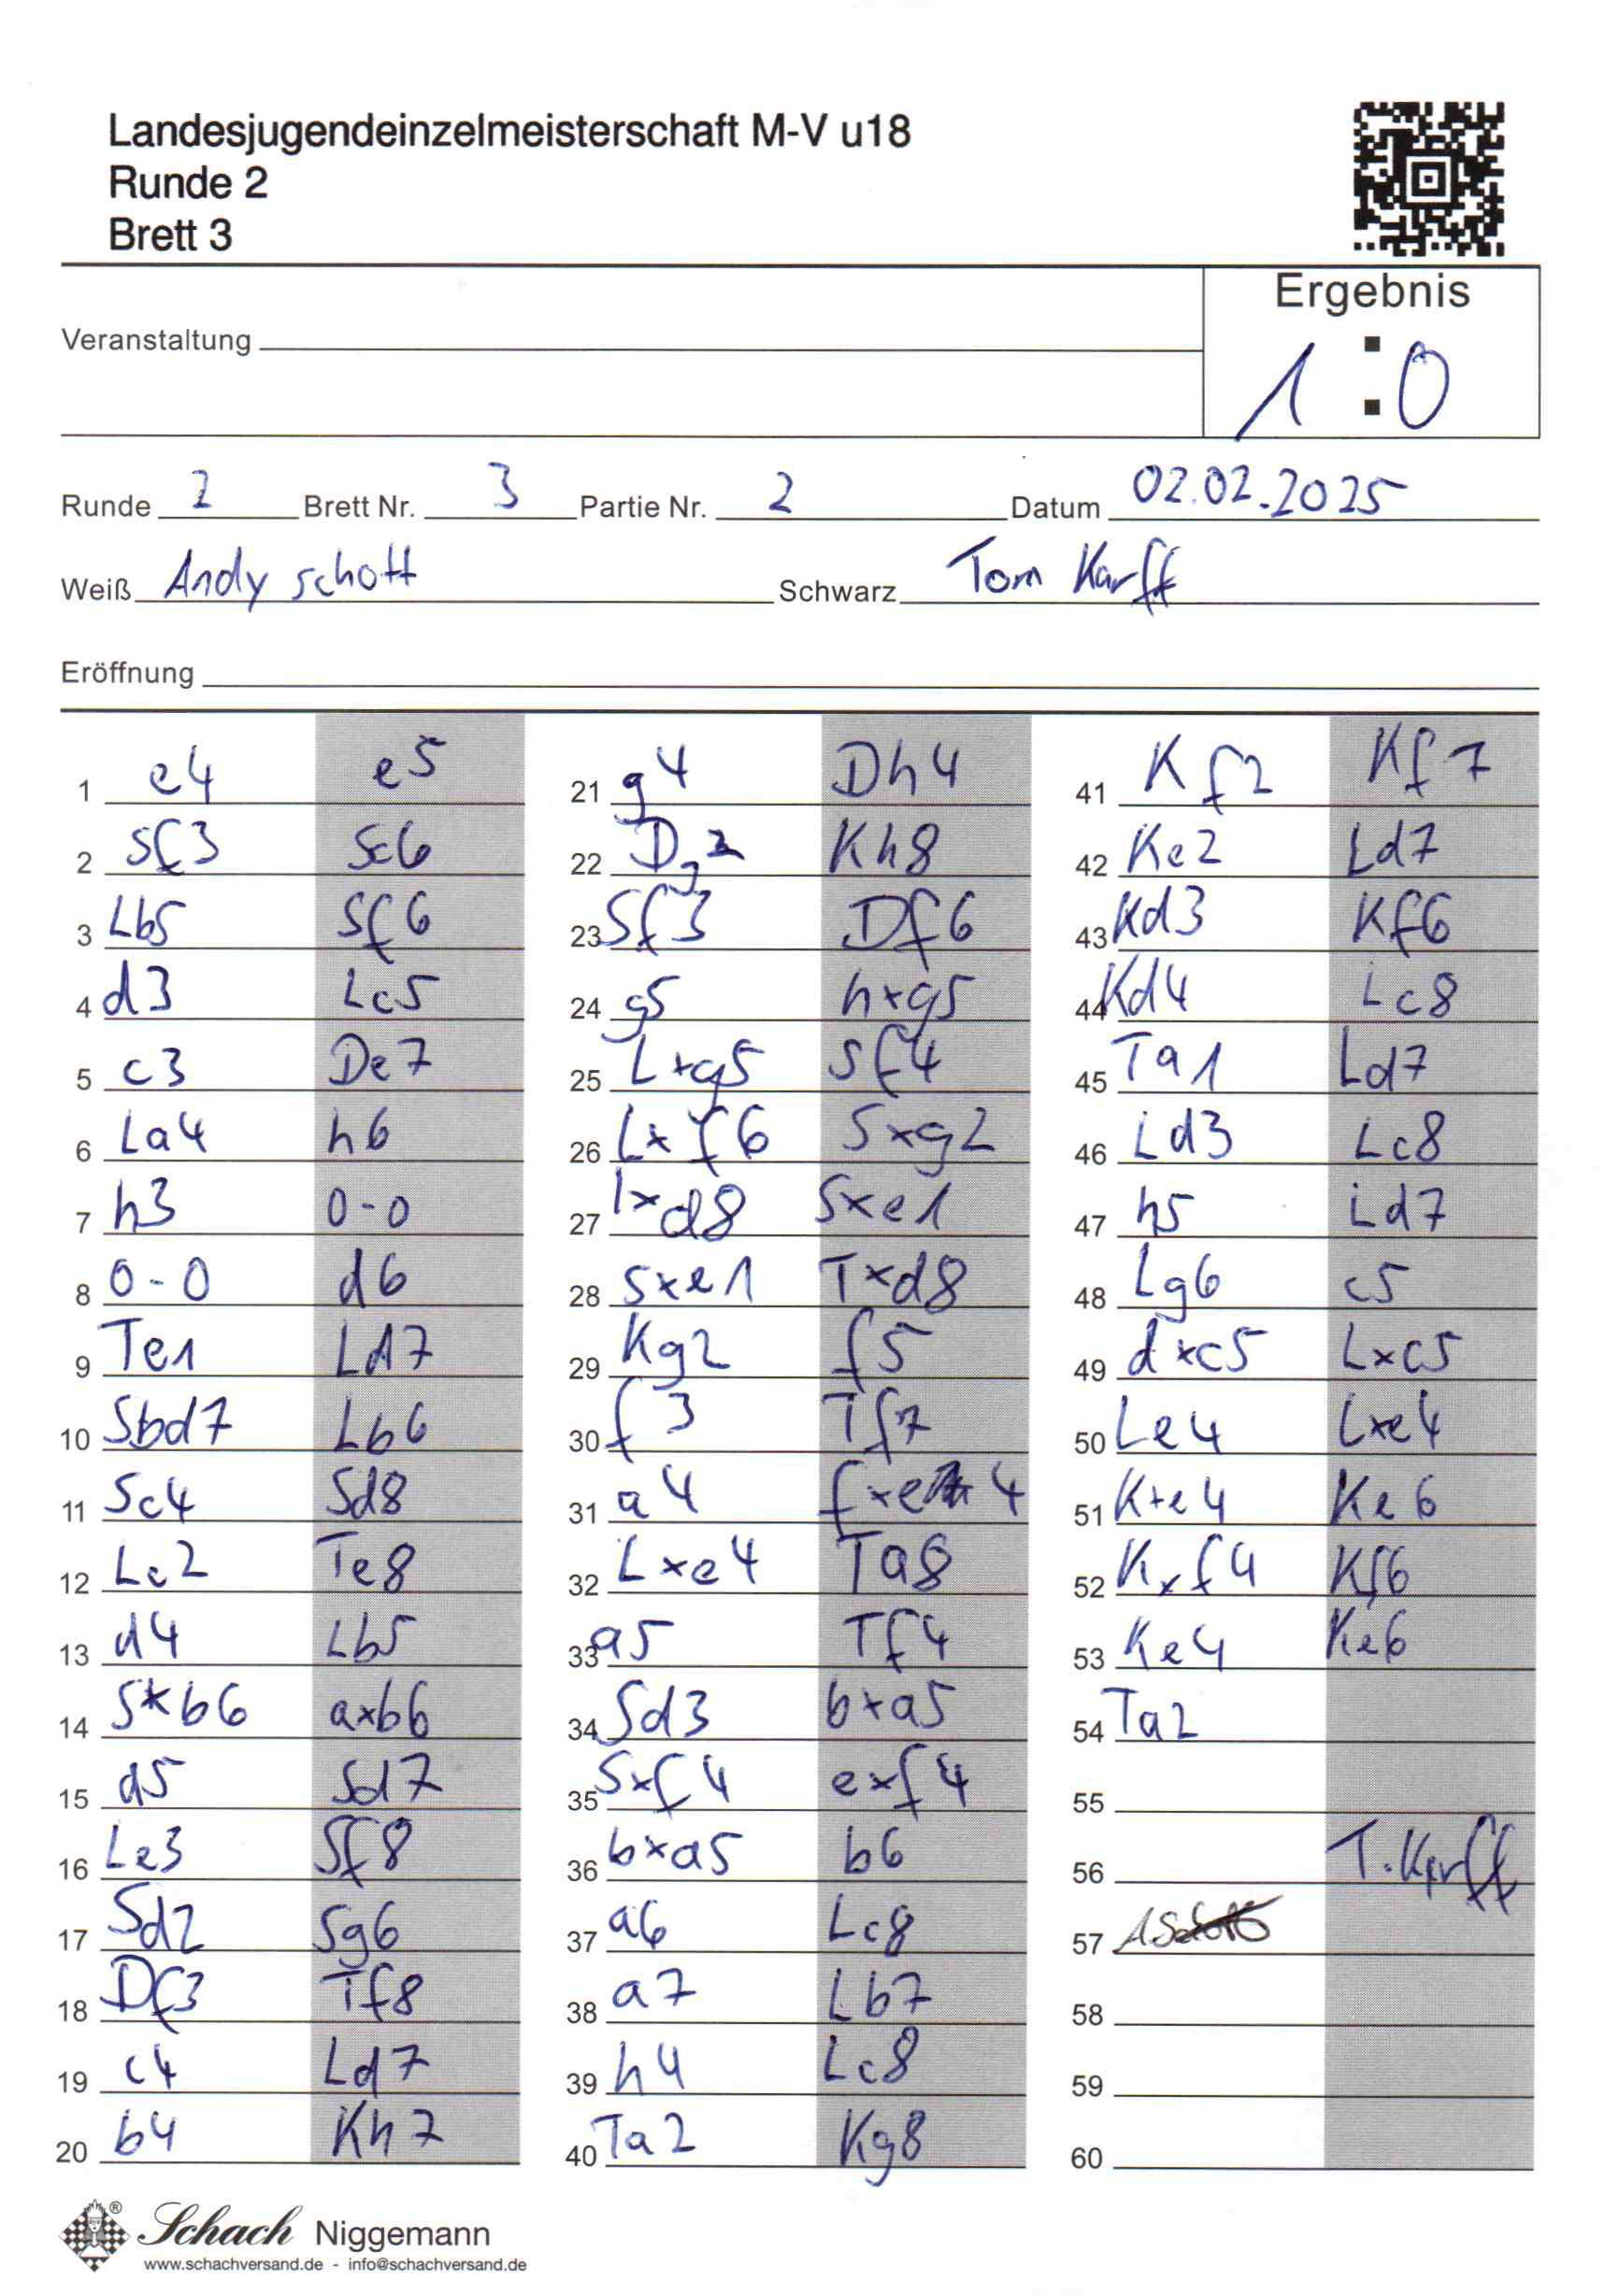 Landesjugendeinzelmeisterschaft M-V u18
Runde 2
Brett 3
Ergebnis
Veranstaltung
1:0
Runde 2 Brett Nr. 3 Partie Nr. 2 Datum 02.02.2025
Weiß Andy Schott Schwarz Tom Karff
Eröffnung
1 e4 e5
2 Sf3 Sc6
3 Lb5 Sf6
4 d3 Lc5
5 c3 De7
6 La4 h6
7 h3 0-0
8 0-0 d6
9 Te1 Ld7
10 Sbd7 Lb6
11 Sc4 Sd8
12 Lc2 Te8
13 d4 Lb5
14 Sxb6 axb6
15 d5 Sd7
16 Le3 Sf8
17 Sd2 Sg6
18 Df3 Tf8
19 c4 Ld7
20 b4 Kh7
21 g4 Dh4
22 Dg2 Kh8
23 Sf3 Df6
24 g5 hxg5
25 Lxg5 Sf4
26 Lxf6 Sxg2
27 lxd8 Sxe1
28 Sxe1 Txd8
29 Kg2 f5
30 f3 Tf7
31 a4 fxe4
32 Lxe4 Ta8
33 a5 Tf4
34 Sd3 bxa5
35 Sxf4 exf4
36 bxa5 b6
37 a6 Lc8
38 a7 Lb7
39 h4 Lc8
40 Ta2 Kg8
41 Kf2 Kf7
42 Ke2 Ld7
43 Kd3 Kf6
44 Kd4 Lc8
45 Ta1 Ld7
46 Ld3 Lc8
47 h5 Ld7
48 Lg6 c5
49 dxc5 Lxc5
50 Le4 Lxe4
51 Kxe4 Ke6
52 Kxf4 Kf6
53 Ke4 Ke6
54 Ta2
55
56 T. Karff
57
58
59
60
Schach Niggemann
www.schachversand.de - info@schachversand.de